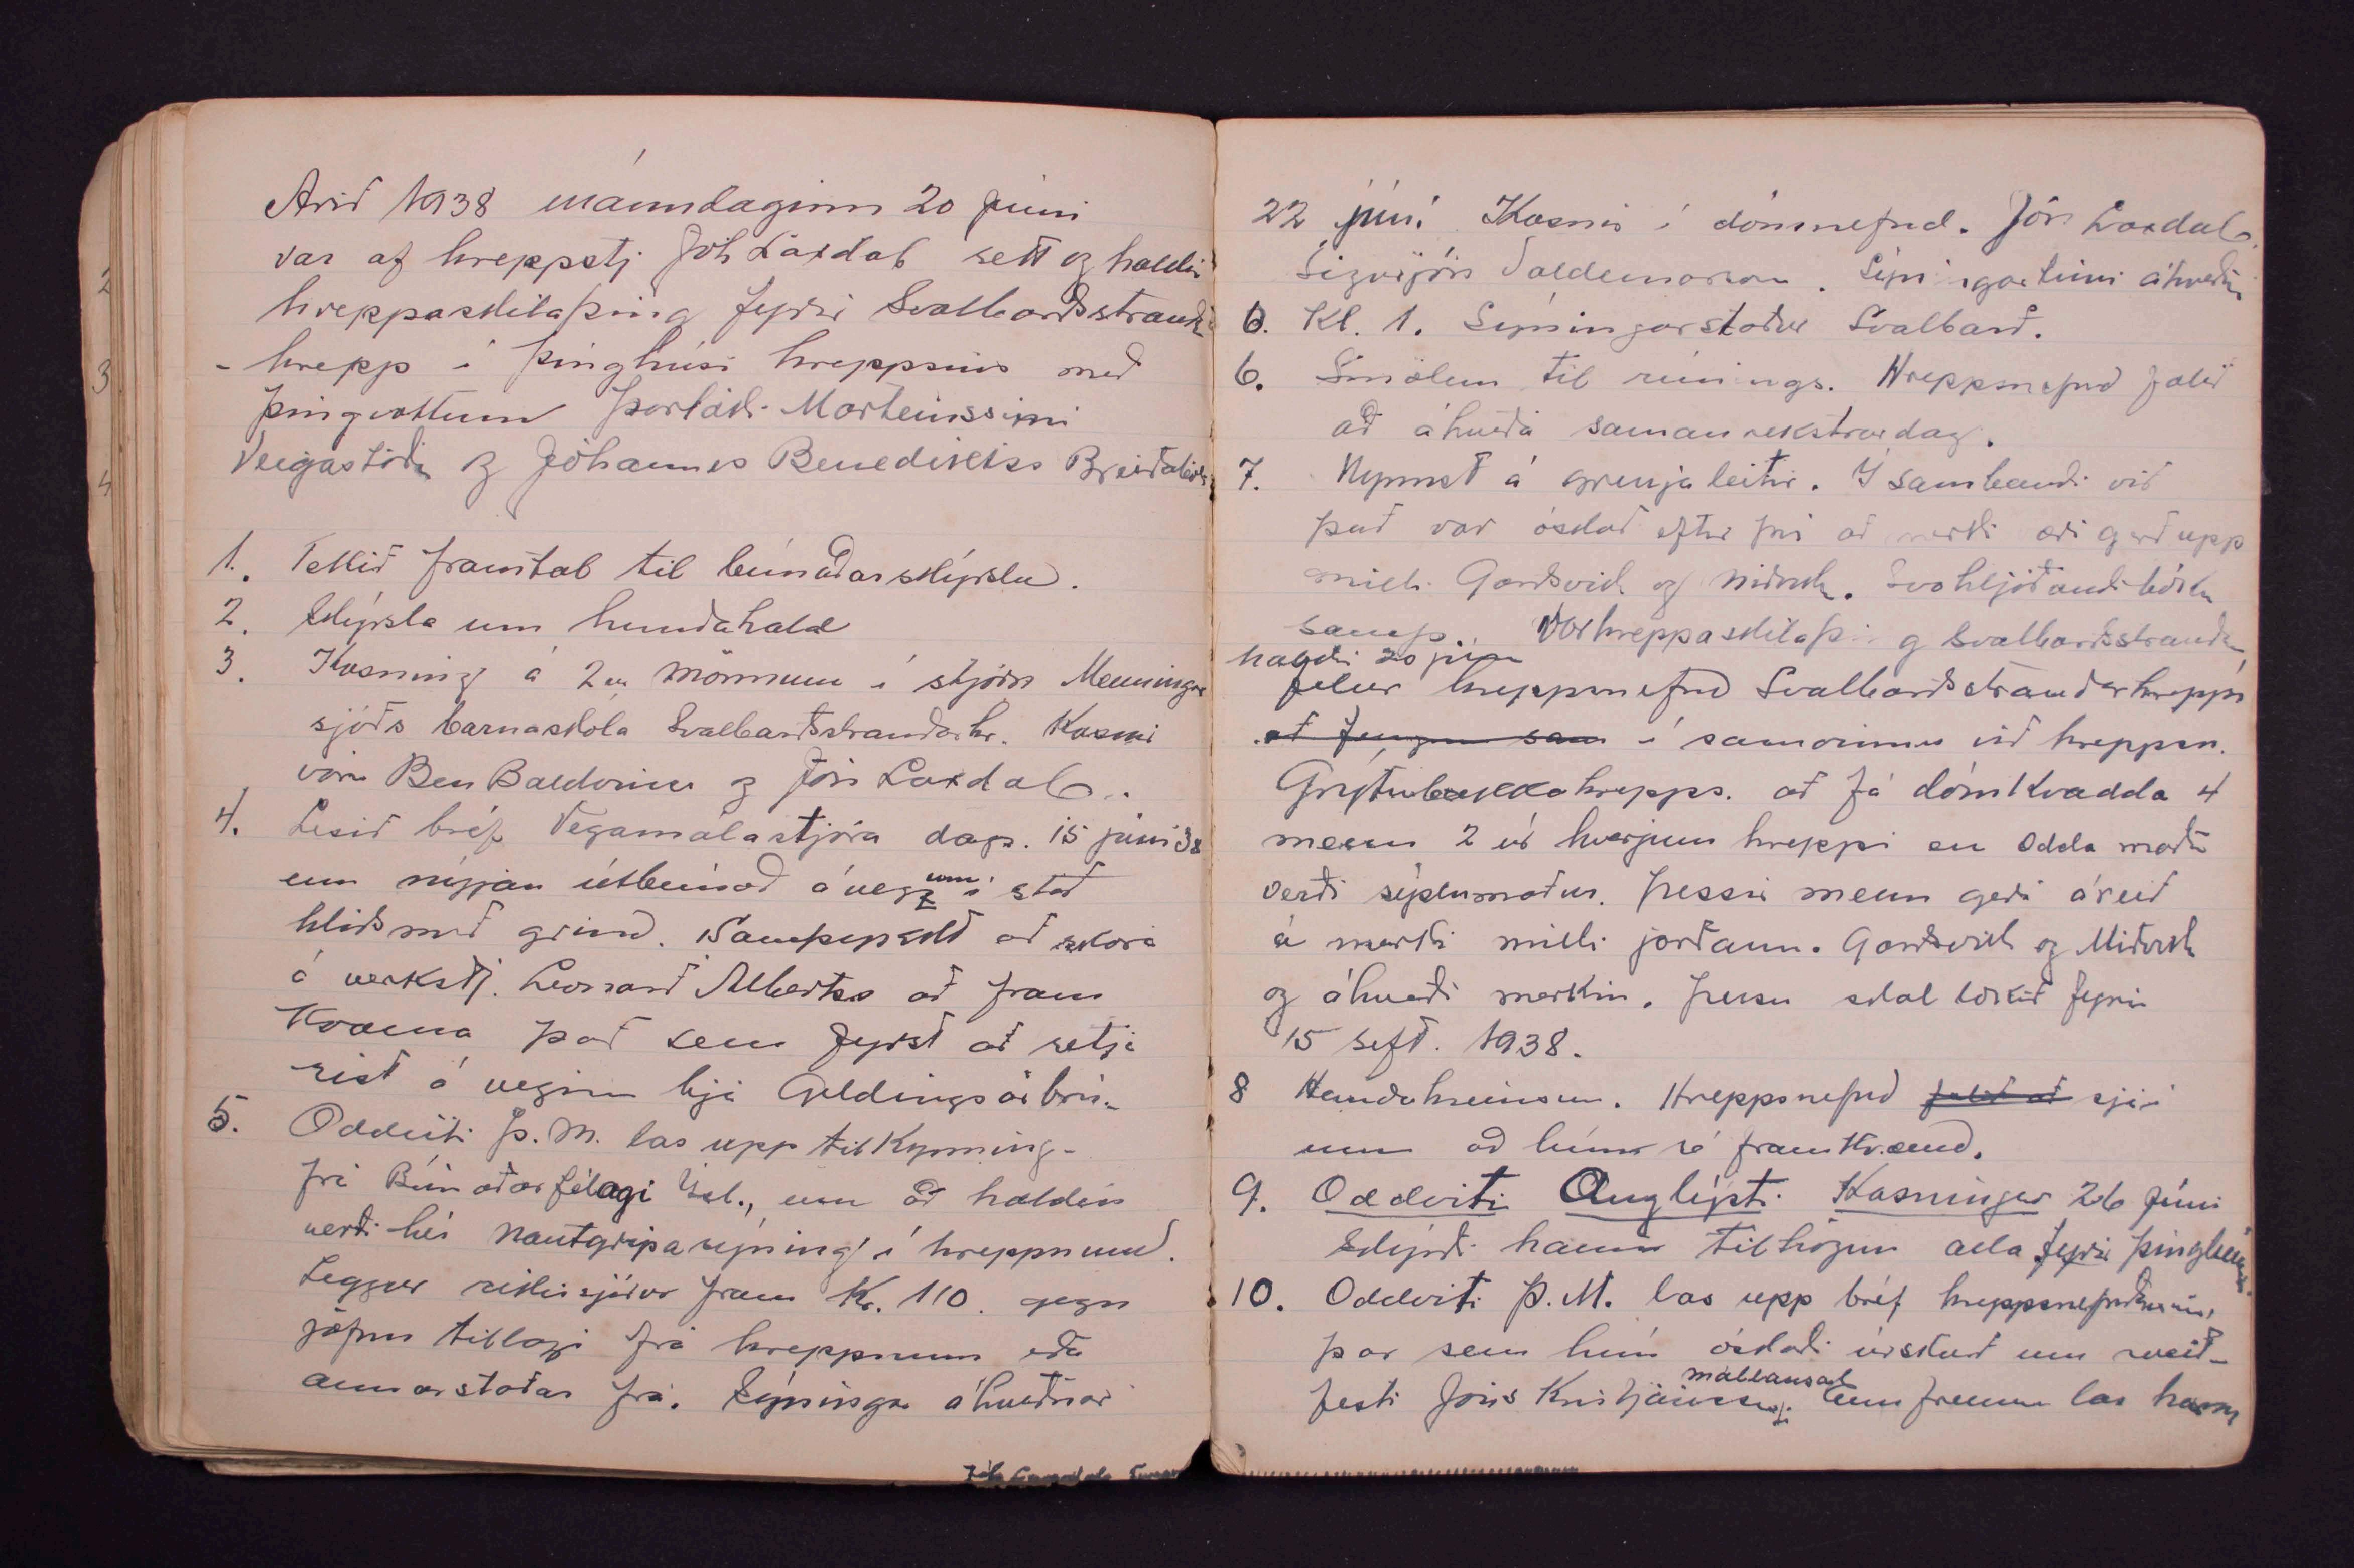 Árið 1938 mánudaginn 20 júni
var af hreppstj Jóh Laxdal sett og haldið
hreppaskilaþing fyrir Svalbarðsstranda
- hrepp i þinghúsi hreppsins með
þingvottum Þorláki Marteinssini
Veigastöðu og Jóhannes Benediktss Breiðabóls
1. Tekið framtal til búnaðarskýrslu.
2. Skýrsla um hundahald
3. Kosning á 2 mönnum i stjórn Menningar
sjóðs barnaskóla Svalbarðsstrandarhr. Kosnir
voru Ben Baldvins og Jón Laxdal.
4. Lesið bréf Vegamálastjóra dags. 15 júni 38
um nýjan útbúnað á veg um i stað
hliðs með grind. Samþykkt að skora
á verkstj. Leonard Albertss að fram
kvæma það sem fyrst að setja
rist á veginn hjá Geldingsárbrú.
5. Oddviti Þ. M. las upp tilkynning-
frá Búnaðarfélagi Ísl., um að haldin
verði hér nautgripasýning i hreppnum.
Leggur rikissjóður fram Kr. 110. gegn
jöfnu tillagi frá hreppnum eða
annarstaðar frá. Sýningar ákveðnar
22 júni Kosnir i dómnefnd. Jón Laxdal
Sigurjón Valdemarson. Sýningartimi ákveðin
6. Kl. 1. Sýningarstaður Svalbarð.
6. Smölun til rúnings. Hreppsnefnd falið
að ákveða samanrekstrardag.
7. Minnst á grenjaleitir. Í sambandi við
það var óskað eftir þvi að merki séu gerð upp
milli Garðsvik og Miðvik. Svohljóðandi tillaga
samþ. Vorhreppaskilaþing Svalbarðsstrandar
haldið 20 júni
felur hreppsnefnd Svalbarðsstrandarhrepps
að fengnu sam i samvinnu við hreppsn.
Grýtubakkahrepps. að fá dómkvadda 4
menn 2 úr hverjum hreppi en Odda maður
verði sýslumaður. Þessir menn geri áreið
á merki milli jarðann. Garðsvik og Miðvik
og ákveði merkin. Þessu skal lokið fyrir
15 sept. 1938.
8 Hundahreinsun. Hreppsnefnd falið að sjái
um að hún sé framkvæmd.
9. Oddviti Auglýsti Kosningar 26 júni
Skýrði hann tilhögun alla fyrir þingheimi.
10. Oddviti Þ. M. las upp bréf hreppsnefndarinnar
þar sem hún óskaði úrskurð um sveit-
málleysa
festi Jóns Kristjánssonar. Enn fremur las hann